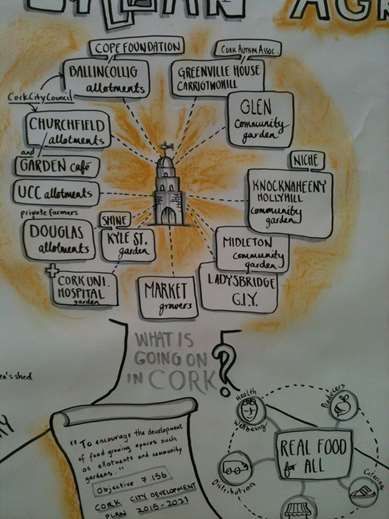 URBAN AGR
COPE FOUNDATION
CORK AUTISM ASSOC.
BALLINCOLLIG
allotments
GREENVILLE HOUSE
CARRIGTWOHILL
Cork City Council
GLEN
Community
garden
CHURCHFIELD
allotments
and
GARDEN Café
NICHE
KNOCKNAHEENY
HOLLYHILL
community
garden
UCC allotments
private farmers
DOUGLAS
allotments
SHINE
KYLE ST.
garden
MIDLETON
community
garden
LADYSBRIDGE
G.I.Y.
CORK UNI.
HOSPITAL
garden
MARKET
growers
WHAT IS
GOING ON
IN CORK?
en's shed
"To encourage the development
of food growing spaces such
as allotments and community
gardens..."
Objective 7.156
CORK CITY DEVELOPMENT
PLAN 2015-2021
Health
Wellbeing
Producers
REAL FOOD
for ALL
Distribution